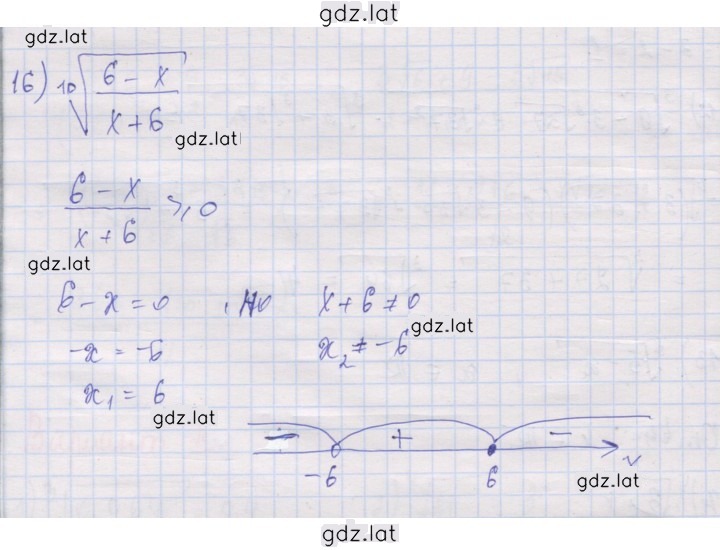 gdz.lat
gdz.lat
16) ¹⁰√((6 - x)/(x + 6))
gdz.lat
(6 - x)/(x + 6) ≥ 0
gdz.lat
6 - x = 0 , но x + 6 ≠ 0
gdz.lat
-x = -6 x₂ ≠ -6
x₁ = 6
gdz.lat
- + -
-6 6 x
gdz.lat
gdz.lat